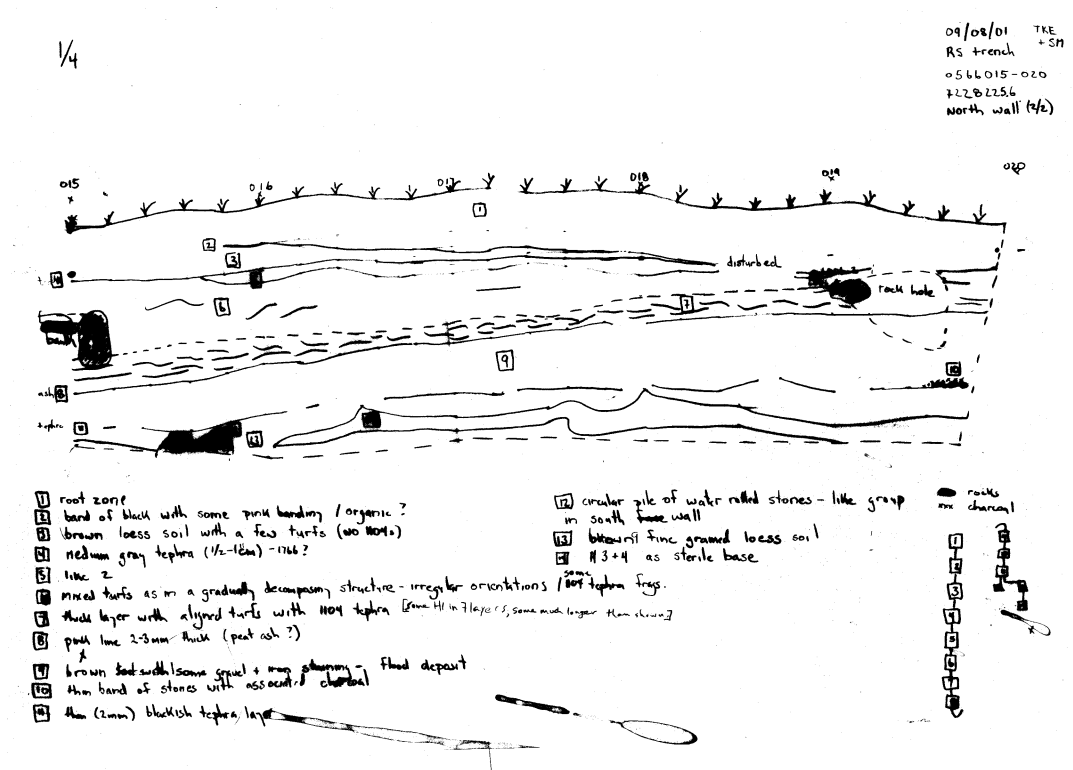 1/4
09/08/01 TKE + SM
RS trench
0566015-020
7228225.6
North wall (2/2)
015
016
017
018
019
020
1
2
3
disturbed
6
7
rock hole
9
10
ash 8
tephra 11
13
1 root zone
2 band of black with some pink banding / organic?
3 brown loess soil with a few turfs (no 1104s)
4 medium gray tephra (1/2-1cm) - 1766?
5 like 2
6 mixed turfs as in a gradually decomposing structure - irregular orientations / some 1104 tephra frags.
7 thick layer with aligned turfs with 1104 tephra [some H1 in 7 layers, some much longer than shown]
8 pink line 2-3mm thick (peat ash?)
9 brown some gravel + iron staining - flood deposit
10 thin band of stones with associated charcoal
11 thin (2mm) blackish tephra layer
12 circular pile of water rolled stones - like group
in south wall
13 brown fine grained loess soil
14 H3+4 as sterile base
rocks
charcoal
1
2
3
4
5
6
7
8